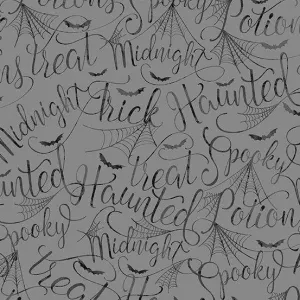 Spooky
treat Potion
Midnight
Midnight Trick Haunted
treat Spooky
Haunted Potion
Spooky Midnight
treat Haunted
Spooky